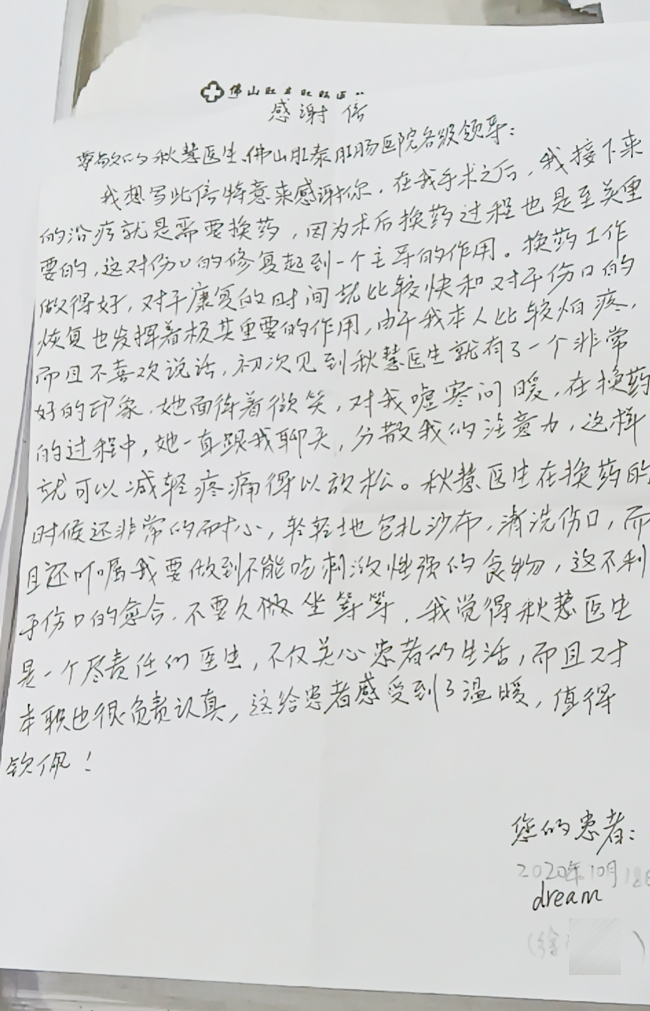 佛山
感谢信
尊敬的秋慧医生、佛山肛泰肛肠医院各级领导：
我想写此信特意来感谢你，在我手术之后，我接下来
的治疗就是需要换药，因为术后换药过程也是至关重
要的，这对伤口的修复起到一个主导的作用。换药工作
做得好，对于康复的时间就比较快和对于伤口的
恢复也发挥着极其重要的作用，由于我本人比较怕疼，
而且不喜欢说话，初次见到秋慧医生就有了一个非常
好的印象，她面待着微笑，对我嘘寒问暖，在换药
的过程中，她一直跟我聊天，分散我的注意力，这样
就可以减轻疼痛得以放松。秋慧医生在换药的
时候还非常的耐心，轻轻地包扎沙布，清洗伤口，而
且还叮嘱我要做到不能吃刺激性强的食物，这不利
于伤口的愈合，不要久做坐等等，我觉得秋慧医生
是一个尽责任的医生，不仅关心患者的生活，而且对
本职也很负责认真，这给患者感受到了温暖，值得
钦佩！
您的患者：
2020年10月18日
dream